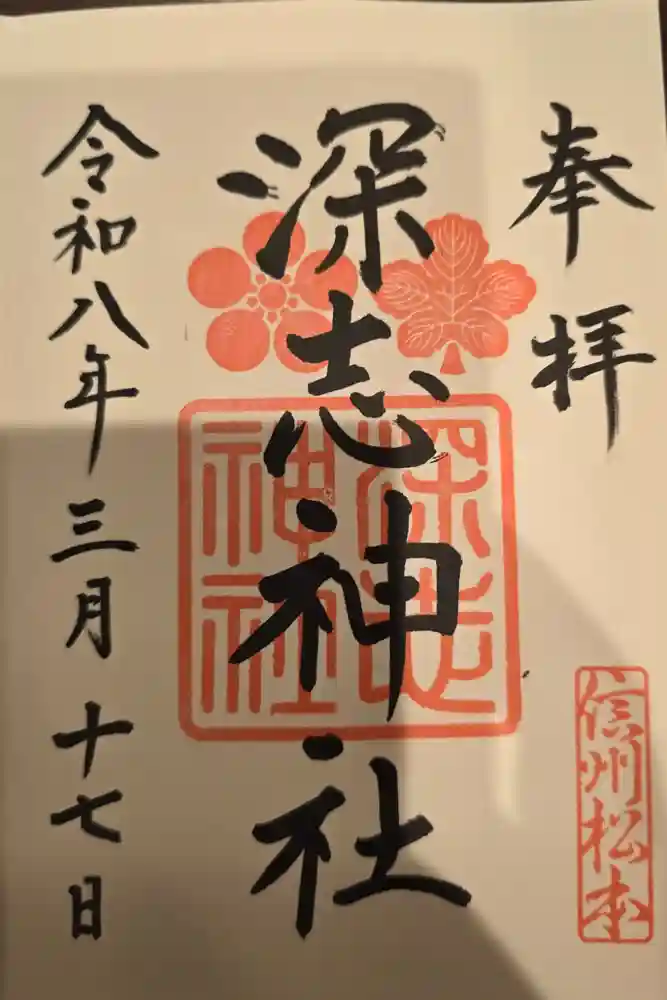 奉拝
深志神社
深志
神社
信州松本
令和八年三月十七日